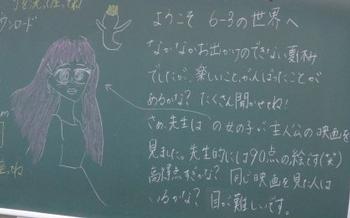 ウンロード
ようこそ 6-3の世界へ
なかなかお出かけのできない夏休み
でしたが、楽しいこと、がんばったことが
あるかな? たくさん聞かせてね!
さぁ、先生は の女の子が主人公の映画を
見ました。先生的には90点の絵です(笑)
高得点すぎかな? 同じ映画を見た人は
いるかな? 目が難しいです。